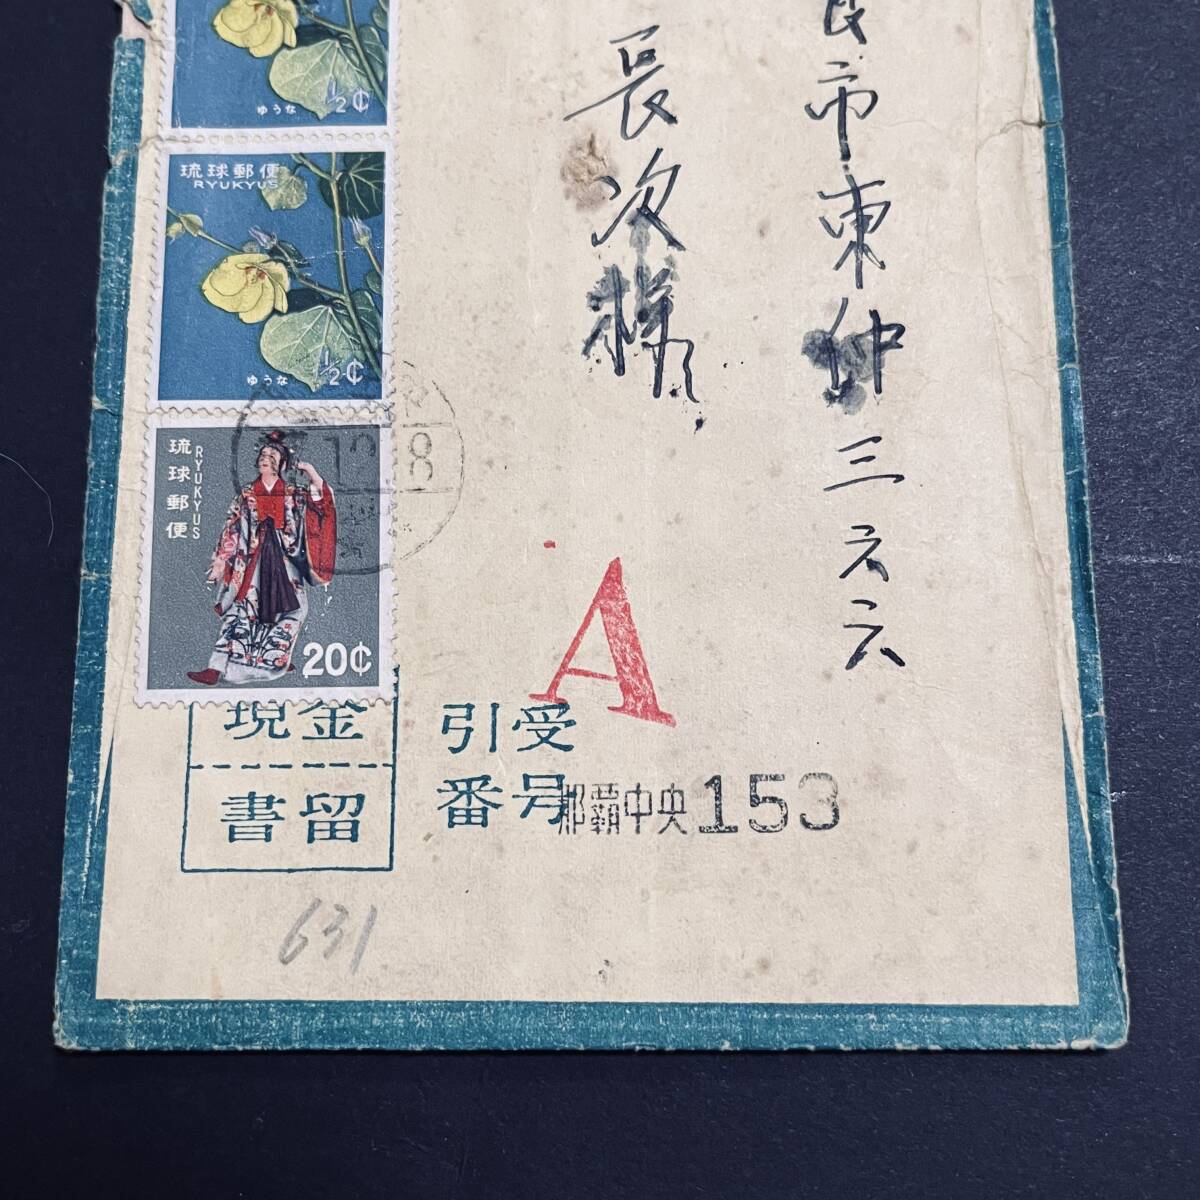 市東仲三六六
長次様
½¢
ゆうな
琉球郵便
RYUKYUS
½¢
ゆうな
琉球郵便
RYUKYUS
20¢
A
現金
書留
引受
番号
那覇中央153
631